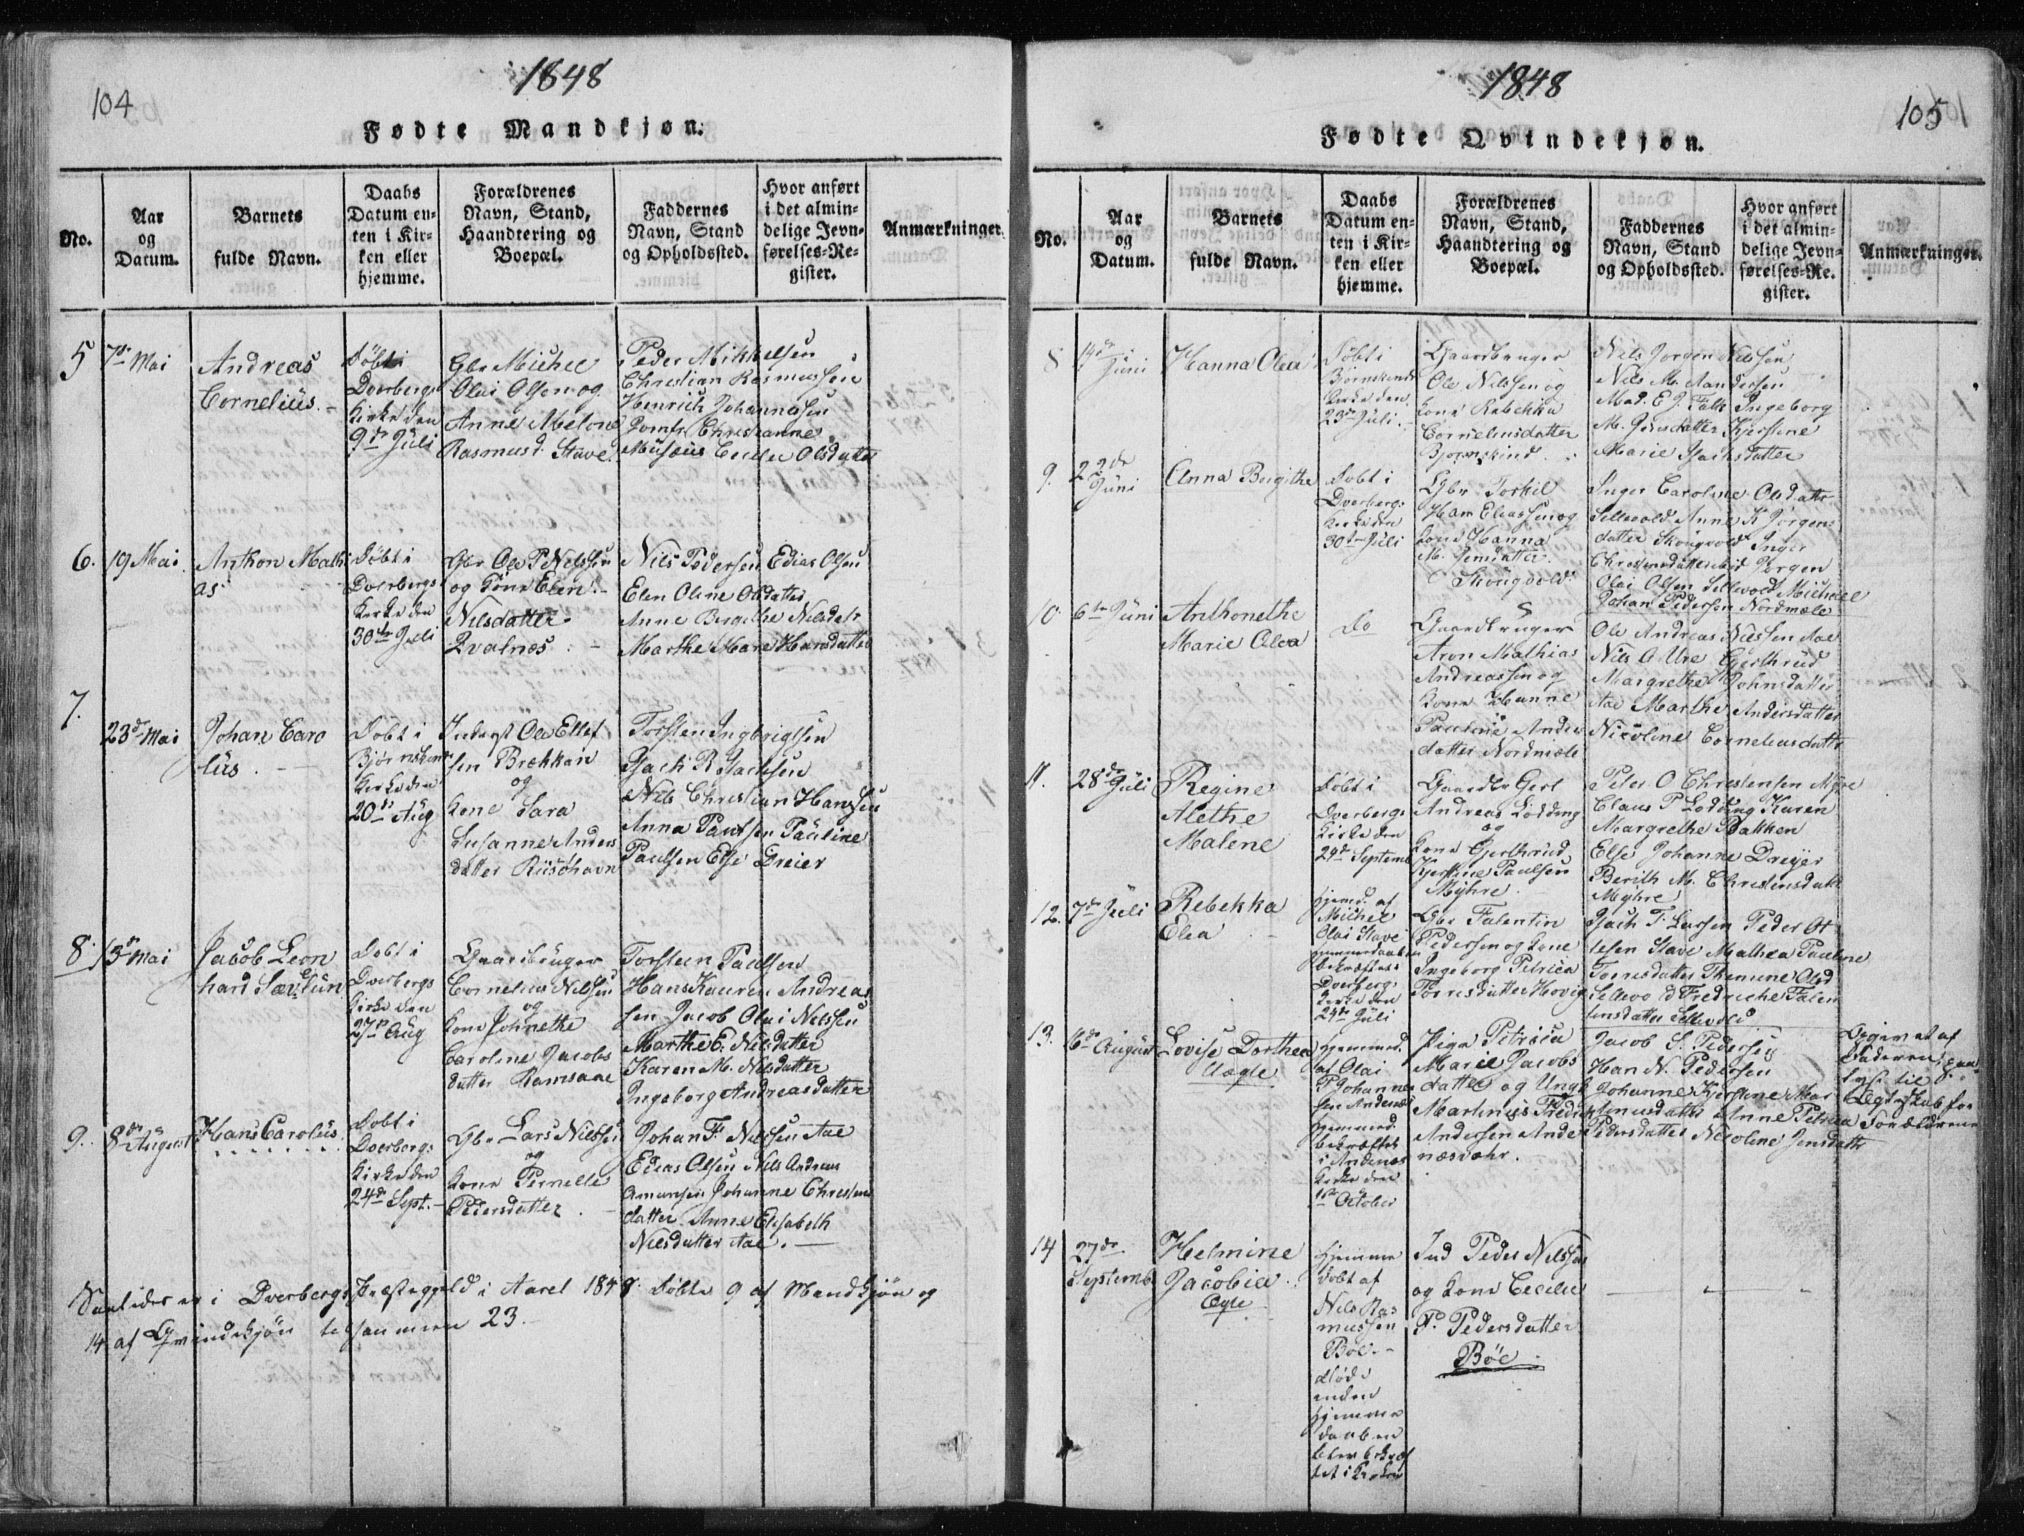 104
1848
Fødte Mandkjøn.
No.
Aar
og
Datum.
Barnets
fulde Navn.
Daabs
Datum en-
ten i Kir-
ken eller
hjemme.
Forældrenes
Navn, Stand,
Haandtering og
Boepæl.
Faddernes
Navn, Stand
og Opholdssted.
Hvor anført
i det almin-
delige Jevn-
førelses-Re-
gister.
Anmærkninger.
5
7de Mai
Andreas
Cornelius.
Døbt i
Dverbergs
Kirke den
9de Juli
Gbr Michel
Olai Olsen og
Anne Malone
Rasmusd. Stave
Peder Mikkelsen
Christian Rasmussen
Henrich Johannesen
Jomfr Christianne
Musæus Cecilie Olsdatter
6.
19 Mai
Anthon Mathi
as
Døbt i
Dverbergs
Kirke den
30te Juli
Gbr Ole P Nielssen
og Kone Elen
Nilsdatter
Qvalnæs
Nils Pedersen Edias Olsen
Elen Oline Olsdatter
Anne Bergithe Nilsdatr
Marthe Marie Hansdatter
7.
23de Mai
Johan Caro
lius.
Døbt i
Bjørnskinn
Kirke den
20de Aug
Inderst Ole Ellef
sen Brækkan
og
Kone Sara
Susanne Anders
datter Riisøhavn
Torsten Ingbrigtsen
Isach R Isachsen
Nils Christian Hanssen
Anna Paulsen Pauline
Paulsen Else Dreier
8.
13de Mai
Jacob Leon
hard
Døbt i
Dverbergs
Kirke den
27de Aug
Gaardbruger
Cornelius Nilssen
og
Kone Johnethe
Caroline Jacobs
datter Ramsaae
Torsteen Paulsen
Hans Kauren Andreas
sen Jacob Olai Nilssen
Marthe E. Nilsdatter
Karen M. Nilsdatter
Ingeborg Andreasdatter
9.
8de August
Hans Carolius.
Døbt i
Dverbergs
Kirke den
24de Sept.
Gbr Lars Nielssen
og
Kone Pernelle
Pedersdatter.
Johan F. Nilssen Aae
Edias Olsen Nils Andreas
Amunsen Johanne Christens
datter Anne Elisabeth
Nilsdatter Aae.
Saaledes er i Dverbergs Præstegjeld i Aaret 1848 Døbte 9 af Mandkjøn og
14 af Qvindekjøn tilsammen 23.
1848
105
Fødte Qvindekjøn.
No.
Aar
og
Datum.
Barnets
fulde Navn.
Daabs
Datum en-
ten i Kir-
ken eller
hjemme.
Forældrenes
Navn, Stand,
Haandtering og
Boepæl.
Faddernes
Navn, Stand
og Opholdssted.
Hvor anført
i det almin-
delige Jevn-
førelses-Re-
gister.
Anmærkninger.
8
Juni
Hanna Olea
Døbt i
Bjørnskinds
Kirke den
23de Juli.
Gaardbruger
Ole Nilssen og
Kone Rebekka
Corneliusdatter
Bjørnskind
Nils Jørgen Nilssen
Nils M. Aandersen
Mad. E J. Falk Ingeborg
M. Jensdatter Kjerstine
Marie Isachsdatter
9.
22de
Juni
Anna Birgithe
Døbt i
Dverbergs
Kirke den
30te Juli
Gbr Torkil
Han Eliassen og
Kone Hanna
M. Jensdatter
Skougvold
Inger Caroline Olsdatr
Sellevold Anne K Jørgens
datter Skougvold Inger
Christensdatter ibid Jørgen
Olai Olsen Sellevold Michael
Johan Pedersen Nordmæle
10.
6te Juni
Anthonethe
Marie Olea
do
Gaardbruger
Aron Mathias
Andreassen og
Kone Hanne
Pauline Andreas
datter Nordmæle
Ole Andreas Nilssen Aae
Nils O Ure Gjerthrud
Margrethe Johnsdatter
Aae Marthe Andersdatter
Nicoline Corneliusdattr
11.
28de Juli
Regine
Alethe
Malene
Døbt i
Dverbergs
Kirke den
24de Septemb
Gaardbr Gert
Andreas Lødding
og
Kone Gjerthrud
Kjerstine Paulsen
Myhre
Peter O Christensen Myre
Claus P Lodding Karen
Margrethe Bakken
Else Johanne Dreyer
Berith M. Christensdatt
Myhre
12.
7de Juli
Rebekka
Elea
hjemd. af
Michel
Olai Stave
Hjemmedaaben
bekræftet i
Dverbergs
Kirke den
24de Juli
Gbr Falentin
Pedersen og Kone
Ingeborg Petrica
Torrisdatter Hovig
Isach T. Larsen Peder Ot
tesen Stave Mathea Pauline
Torrisdatter Olsd
Sellevold Fredriche Falen
tinsdatter Sellevold
13.
6de August
Lovise Dorthea
Uægte
hjemmed.
af Olai
P Johannes
sen Andenæs
hjemmed.
bekræftet
i Andenæs
Kirke den
1ste October
Pige Petrica
Marie Jacobs
datter og Ungk
Martinus Fredrik
Andersen Ande
næsvær.
Jacob S. Pedersen
Han N. Pedersen
Johanne Kjerstine Mar
tinusdatter Anne Petrica
Pedersdatter Nicoline Jensdattr
Begivet af
Faderen
lyst til
Ægteskab for
Forældrene
14
27de
Septemb.
Helmine
Jacobia.
Ægte
Hjemme
døbt af
Nils Ras
mussen
Böe.
døde
inden
Hjemme
daaben
blev bekræf
tet i Kirken
Ind Peder Nilssen
og Kone Cecilie
P. Pedersdatter
Böe